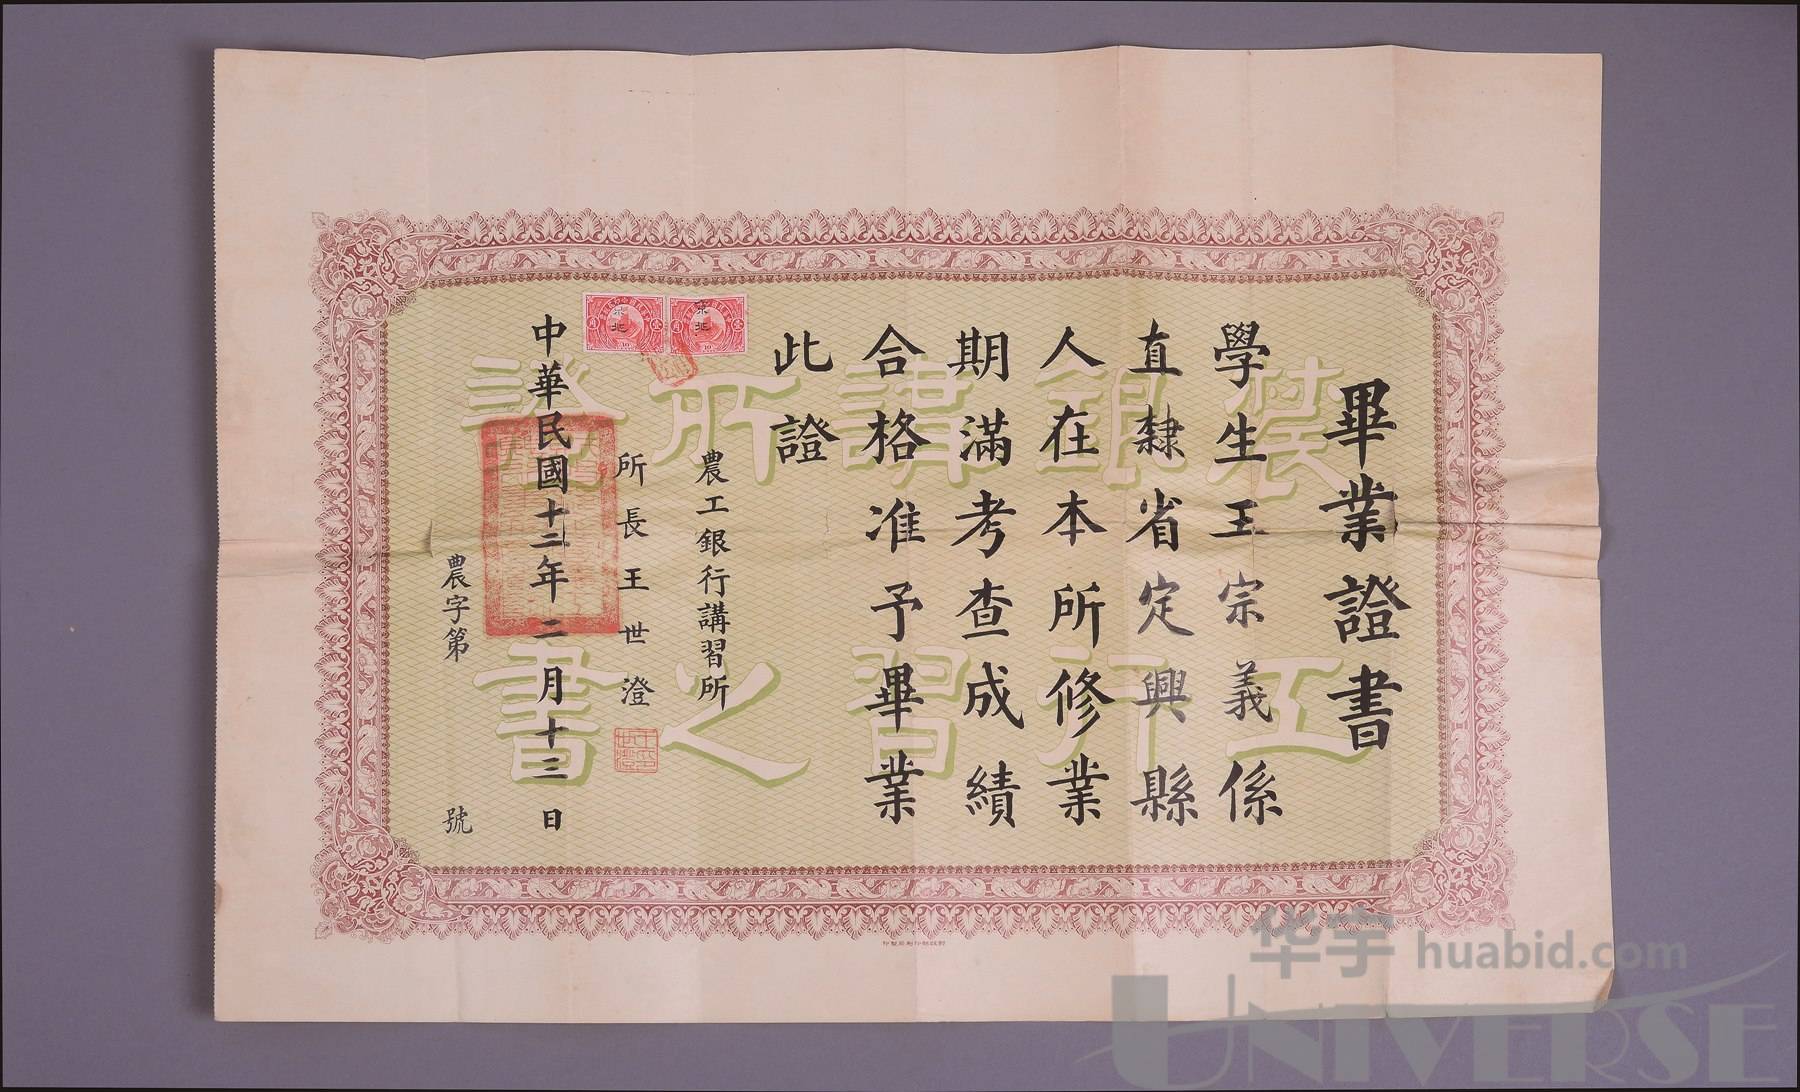 畢業證書
學生王宗義係
直隸省定興縣
人在本所修業
期滿考查成績
合格准予畢業
此證
農工銀行講習所
所長王世澄
中華民國十二年二月十三日
農字第 號
工銀行講習所之證書
財政部印刷局製印
华宇 huabid.com
UNIVERSE